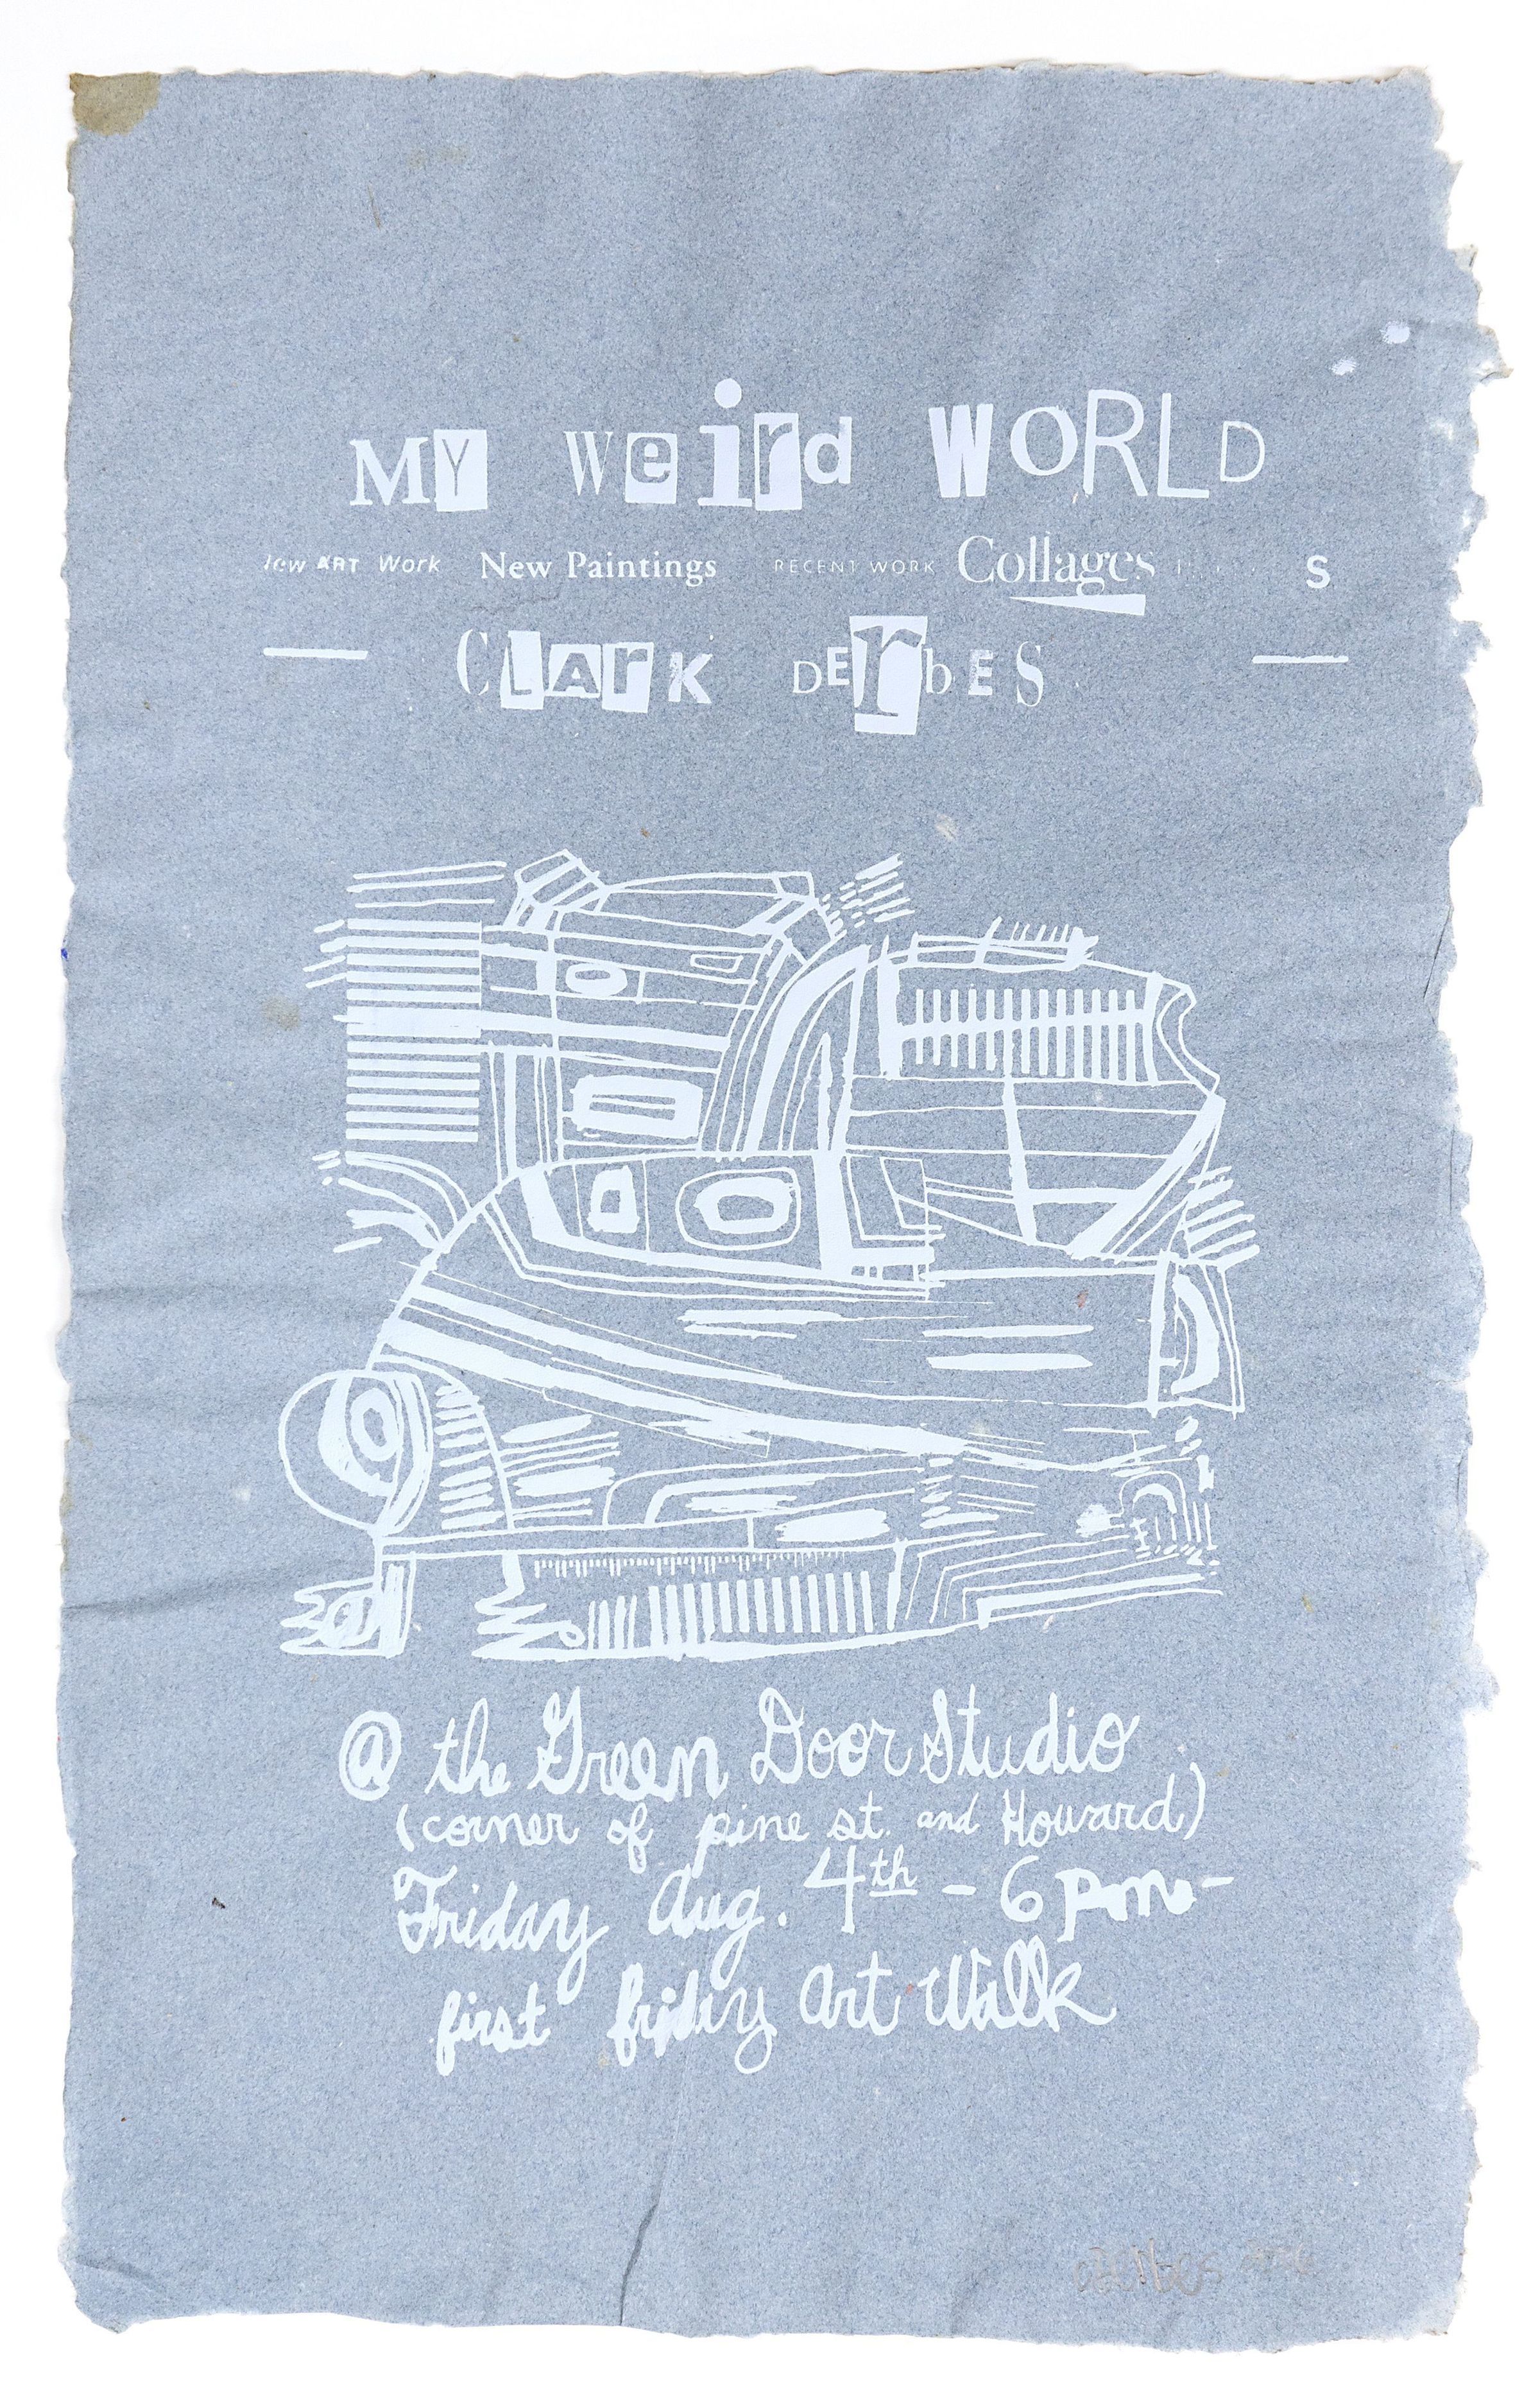 MY weird WORLD
New ART Work New Paintings RECENT WORK Collages S
CLArK DErbES
@ the Green Door Studio
(corner of pine st. and Howard)
Friday Aug. 4th - 6pm-
first friday art Walk